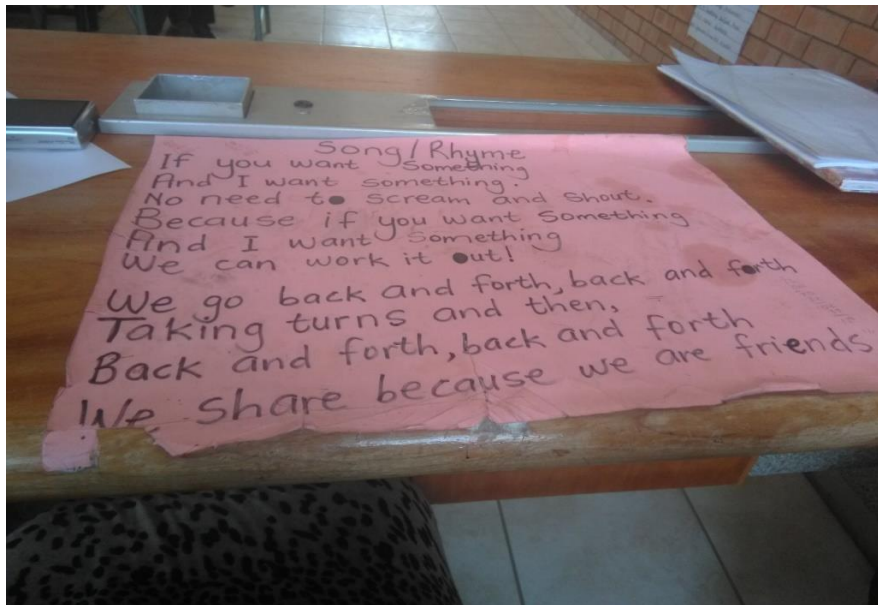 Song/Rhyme
If you want Something
And I want something.
No need to scream and shout.
Because if you want Something
And I want Something
We can work it out!
We go back and forth, back and forth
Taking turns and then,
Back and forth, back and forth
We share because we are friends